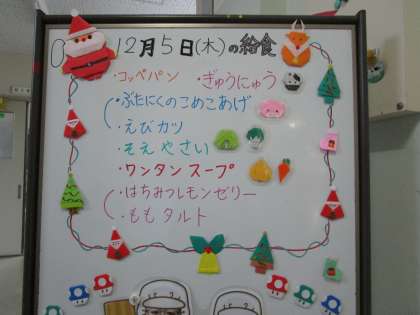 12月5日(木)の給食
・コッペパン ・ぎゅうにゅう
・ぶたにくのこめこあげ
・えびカツ
・そえやさい
・ワンタンスープ
・はちみつレモンゼリー
・ももタルト